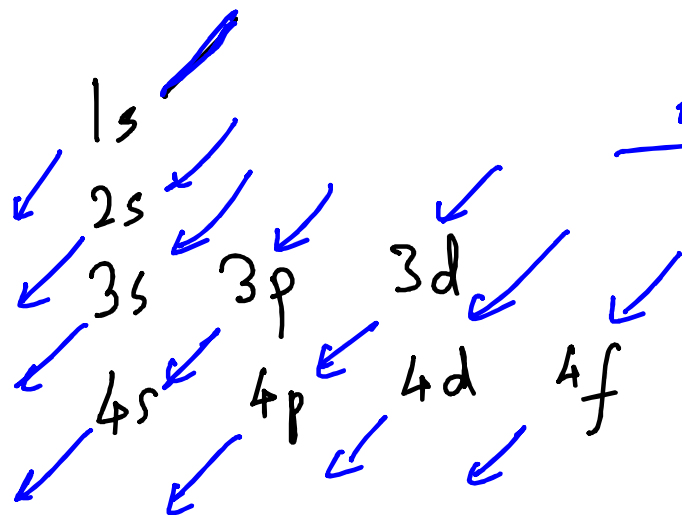 1s
2s
3s 3p 3d
4s 4p 4d 4f